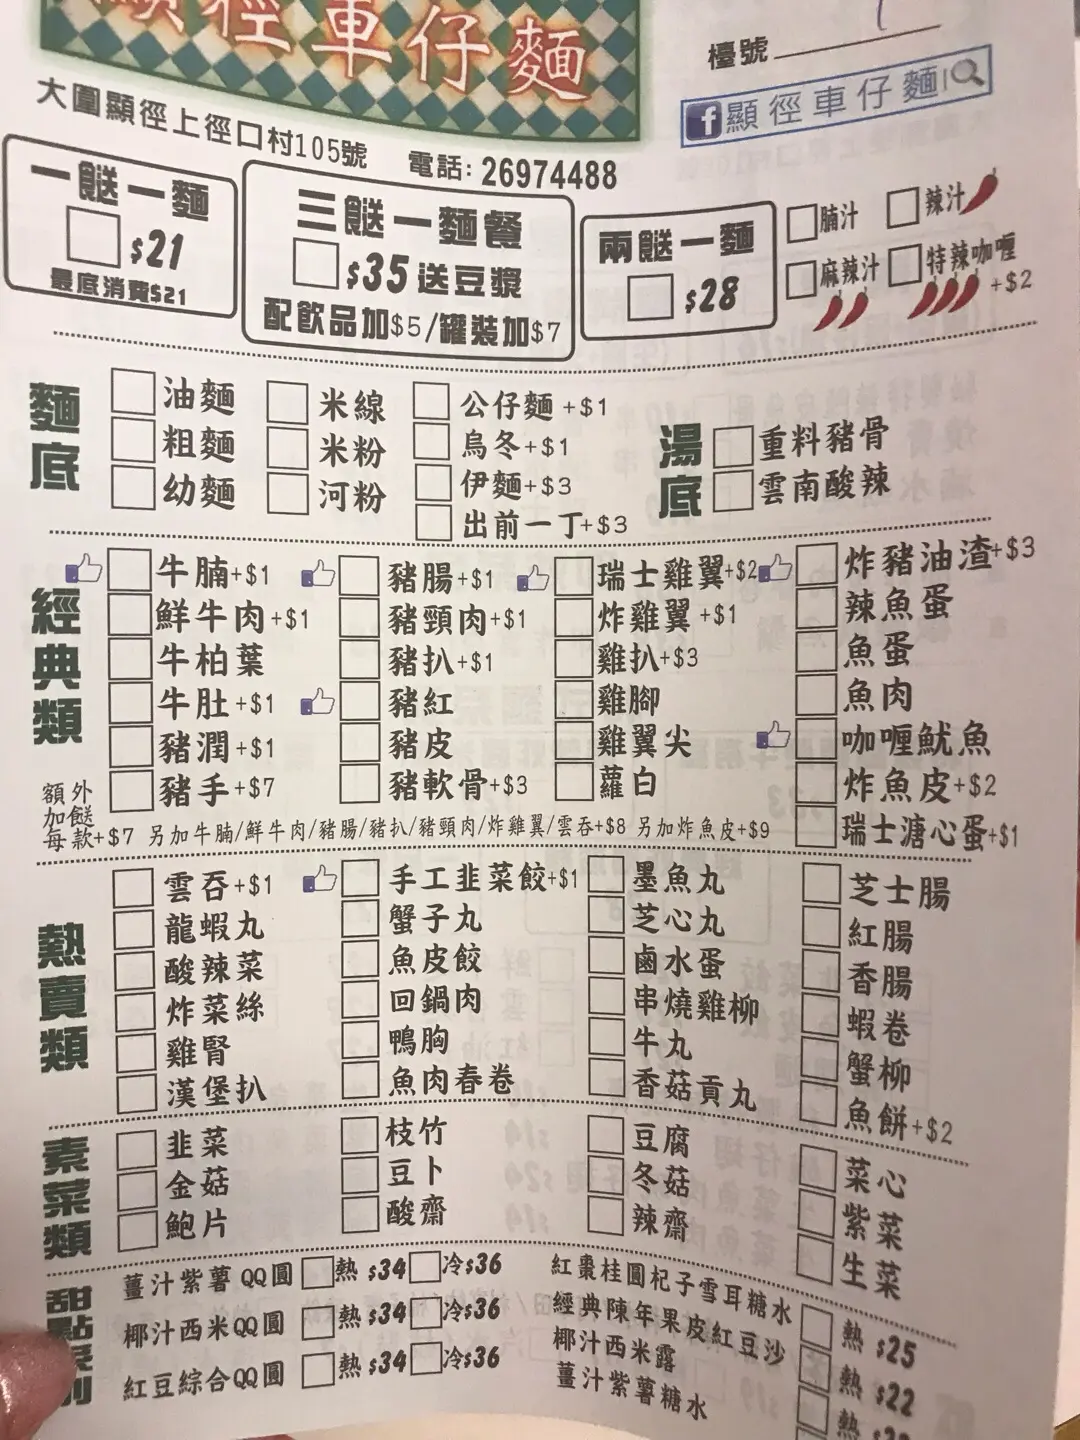 顯徑車仔麵
檯號
顯徑車仔麵
大圍顯徑上徑口村105號 電話: 26974488
一餸一麵
$21
最底消費$21
三餸一麵餐
$35送豆漿
配飲品加$5/罐裝加$7
兩餸一麵
$28
腩汁 辣汁
麻辣汁 特辣咖喱+$2
麵底
油麵 米線 公仔麵+$1
粗麵 米粉 烏冬+$1
幼麵 河粉 伊麵+$3
出前一丁+$3
湯底
重料豬骨
雲南酸辣
經典類
牛腩+$1 豬腸+$1 瑞士雞翼+$2 炸豬油渣+$3
鮮牛肉+$1 豬頸肉+$1 炸雞翼+$1 辣魚蛋
牛柏葉 豬扒+$1 雞扒+$3 魚蛋
牛肚+$1 豬紅 雞腳 魚肉
豬潤+$1 豬皮 雞翼尖 咖喱魷魚
豬手+$7 豬軟骨+$3 蘿白 炸魚皮+$2
瑞士溏心蛋+$1
額外
加餸
每款+$7 另加牛腩/鮮牛肉/豬腸/豬扒/豬頸肉/炸雞翼/雲吞+$8 另加炸魚皮+$9
熱賣類
雲吞+$1 手工韭菜餃+$1 墨魚丸 芝士腸
龍蝦丸 蟹子丸 芝心丸 紅腸
酸辣菜 魚皮餃 鹵水蛋 香腸
炸菜絲 回鍋肉 串燒雞柳 蝦卷
雞腎 鴨胸 牛丸 蟹柳
漢堡扒 魚肉春卷 香菇貢丸 魚餅+$2
素菜類
韭菜 枝竹 豆腐 菜心
金菇 豆卜 冬菇 紫菜
鮑片 酸齋 辣齋 生菜
甜點系列
薑汁紫薯QQ圓 熱$34 冷$36
椰汁西米QQ圓 熱$34 冷$36
紅豆綜合QQ圓 熱$34 冷$36
紅棗桂圓杞子雪耳糖水 熱 $25
經典陳年果皮紅豆沙 熱 $22
椰汁西米露 熱
薑汁紫薯糖水